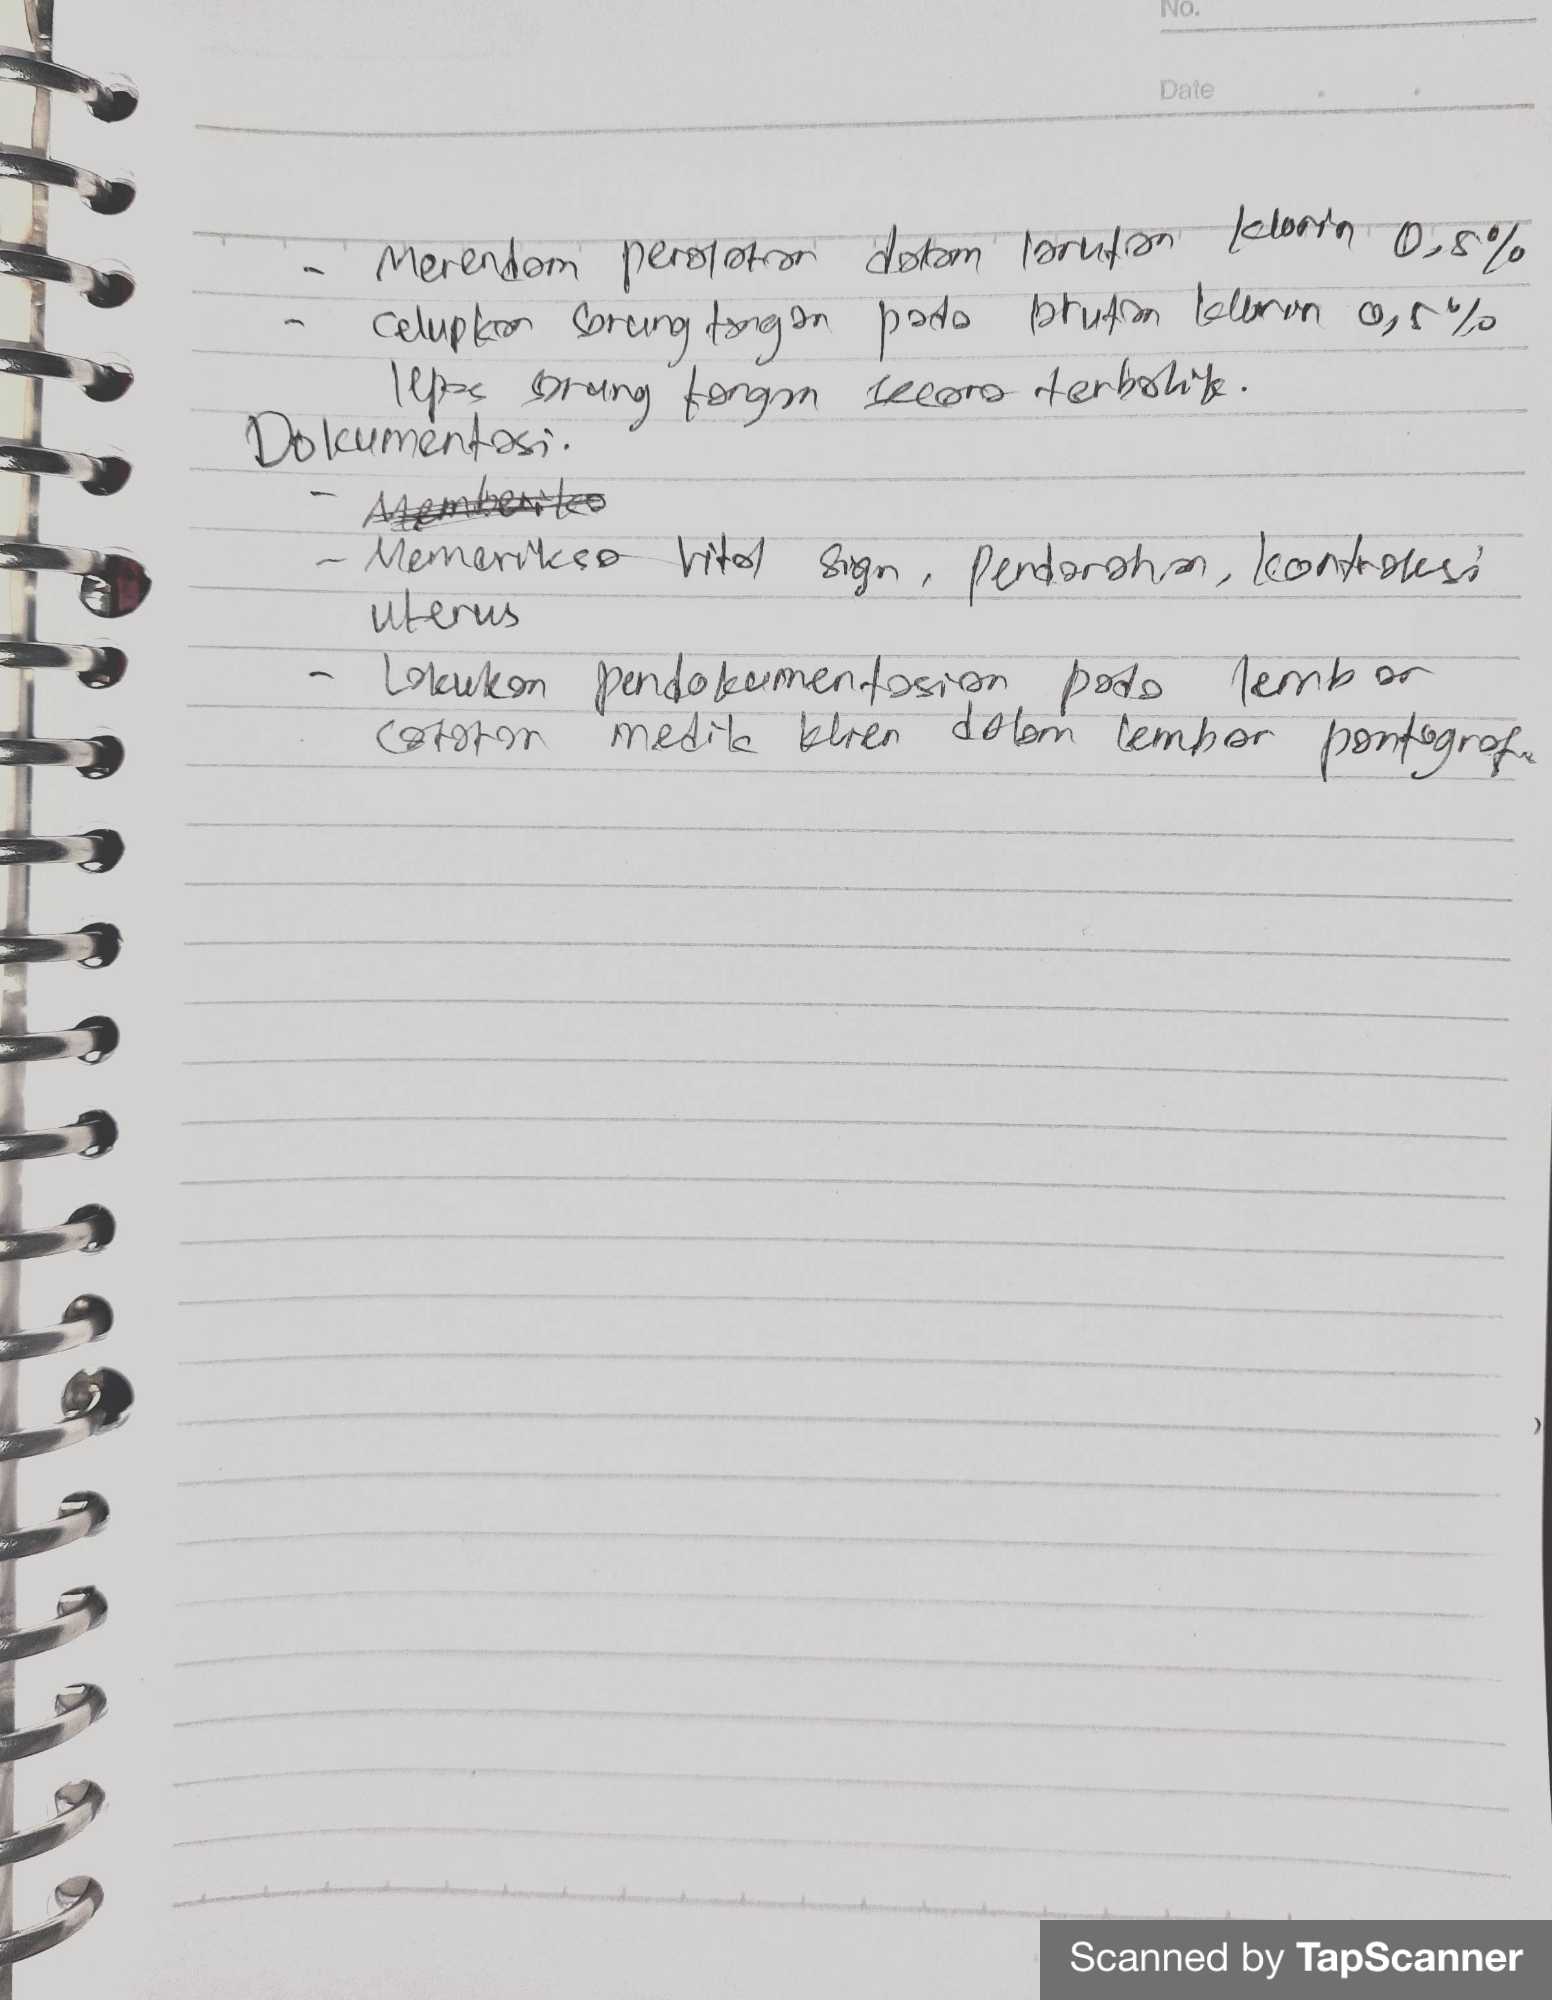 No.
Date
- Merendam peralatan dalam larutan klorin 0,5%
- Celupkan sarung tangan pada larutan klorin 0,5%
lepas sarung tangan secara terbalik.
Dokumentasi.
- Memberika
- Memeriksa vital sign, pendarahan, kontraksi
uterus
- Lakukan pendokumentasian pada lembar
catatan medik klien dalam lembar partograf.
Scanned by TapScanner